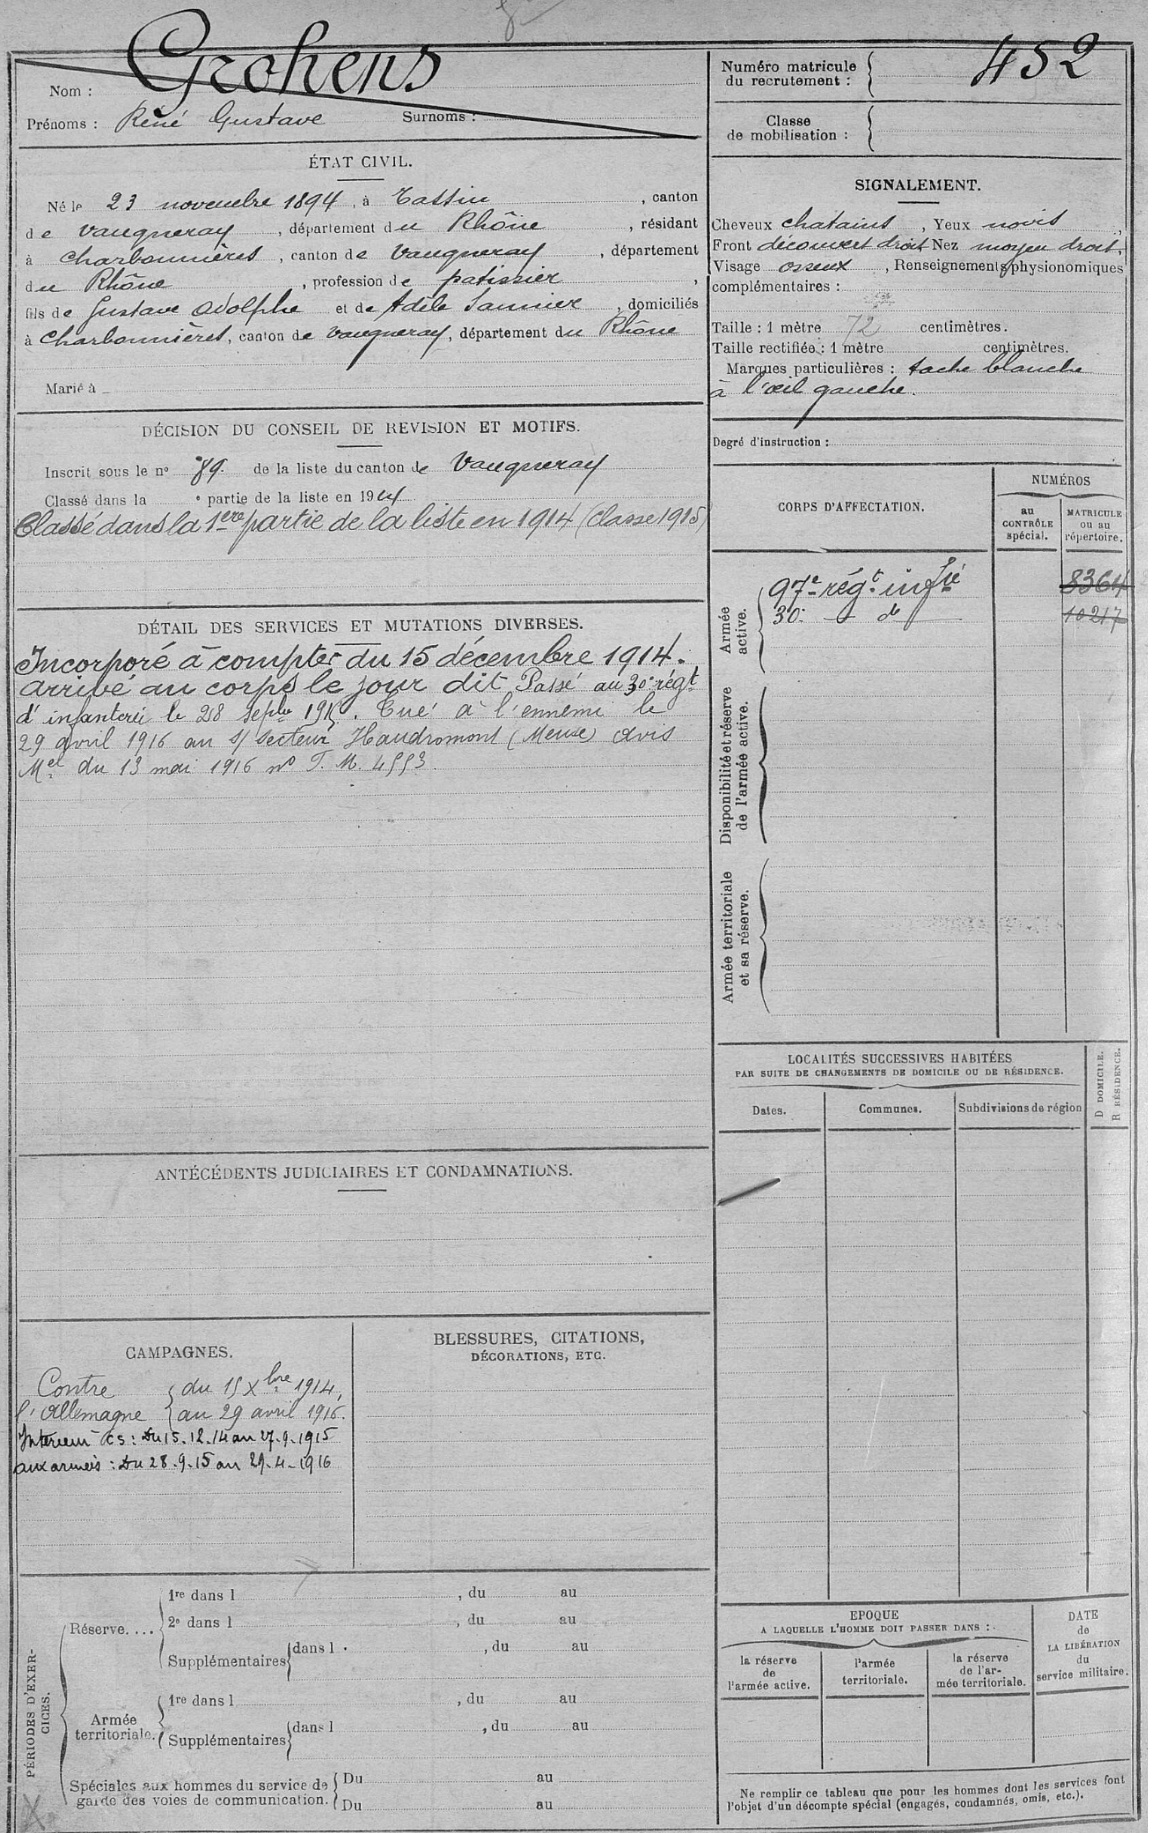 Grohens
Nom :
Prénoms : René Gustave Surnoms :
ÉTAT CIVIL.
Né le 23 novembre 1894, à Tassin , canton
de Vaugneray , département du Rhône , résidant
à Charbonnières , canton de Vaugneray , département
du Rhône , profession de patissier ,
fils de Gustave Adolphe et de Adèle Saunier , domiciliés
à Charbonnières, canton de Vaugneray, département du Rhône
Marié à
DÉCISION DU CONSEIL DE REVISION ET MOTIFS.
Inscrit sous le no 89 de la liste du canton de Vaugneray
Classé dans la e partie de la liste en 1914
Classé dans la 1ère partie de la liste en 1914 (classe 1915)
DÉTAIL DES SERVICES ET MUTATIONS DIVERSES.
Incorporé à compter du 15 décembre 1914.
arrivé au corps le jour dit. Passé au 30e régt
d'infanterie le 28 septbre 1915. Tué à l'ennemi le
29 avril 1916 au s/ secteur Haudromont (Meuse) avis
Mel du 13 mai 1916 no T. M. 4553.
ANTÉCÉDENTS JUDICIAIRES ET CONDAMNATIONS.
CAMPAGNES.
Contre { du 15 Xbre 1914,
l'Allemagne { au 29 avril 1916.
Intérieur CS : Du 15.12.14 au 27.9.1915
aux armées : Du 28.9.15 au 29.4.1916
BLESSURES, CITATIONS,
DÉCORATIONS, ETC.
PÉRIODES D'EXER-
CICES.
Réserve....
1re dans l , du au
2e dans l , du au
Supplémentaires { dans l , du au
Armée
territoriale.
1re dans l , du au
Supplémentaires { dans l , du au
Spéciales aux hommes du service de
garde des voies de communication.
Du au
Du au
Numéro matricule
du recrutement : 452
Classe
de mobilisation :
SIGNALEMENT.
Cheveux chatains , Yeux noirs ,
Front découvert droit Nez moyen droit,
Visage osseux , Renseignements physionomiques
complémentaires :
Taille : 1 mètre 72 centimètres.
Taille rectifiée : 1 mètre centimètres.
Marques particulières : tache blanche
à l'œil gauche.
Degré d'instruction :
CORPS D'AFFECTATION.
NUMÉROS
au
CONTRÔLE
spécial.
MATRICULE
ou au
répertoire.
Armée
active.
97e régt infie 8364
30e do 10217
Disponibilité et réserve
de l'armée active.
Armée territoriale
et sa réserve.
LOCALITÉS SUCCESSIVES HABITÉES
PAR SUITE DE CHANGEMENTS DE DOMICILE OU DE RÉSIDENCE.
D DOMICILE.
R RÉSIDENCE.
Dates. Communes. Subdivisions de région
EPOQUE
A LAQUELLE L'HOMME DOIT PASSER DANS :
la réserve
de
l'armée active.
l'armée
territoriale.
la réserve
de l'ar-
mée territoriale.
DATE
de
LA LIBÉRATION
du
service militaire.
Ne remplir ce tableau que pour les hommes dont les services font
l'objet d'un décompte spécial (engagés, condamnés, omis, etc.).